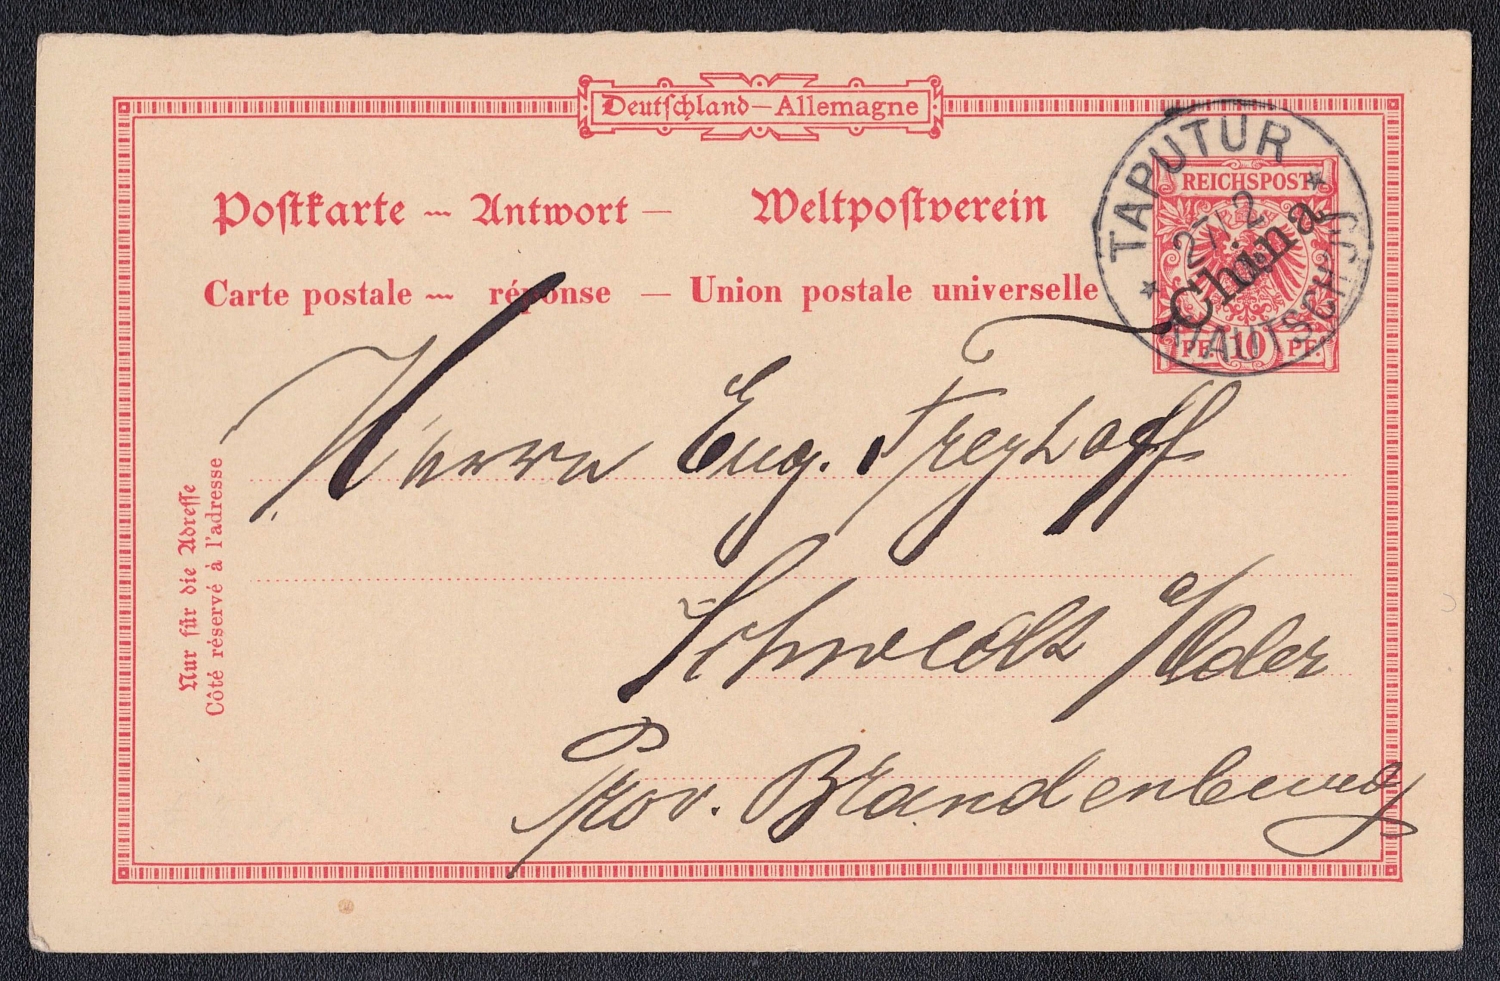 Deutschland—Allemagne
Postkarte — Antwort — Weltpostverein
Carte postale — réponse — Union postale universelle
REICHSPOST
China
PF 10 PF.
TAPUTUR
27/2
KIAUTSCHOU
Herrn Eug. Freyhoff
Schwedt a/Oder
Prov. Brandenburg
Nur für die Adresse
Côté réservé à l'adresse